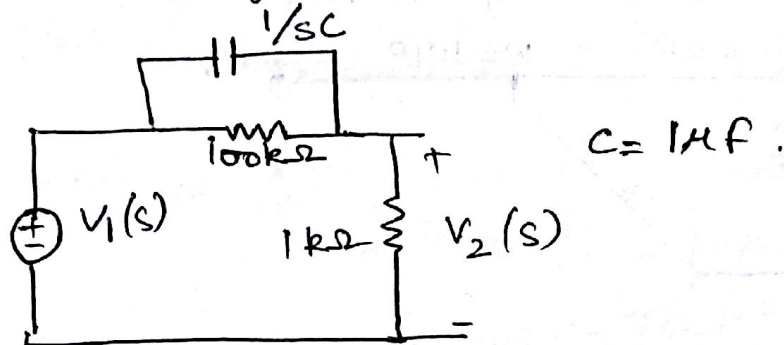 1/sC
100kΩ
C = 1μf.
+
V₁(s)
+
-
1kΩ
V₂(s)
-